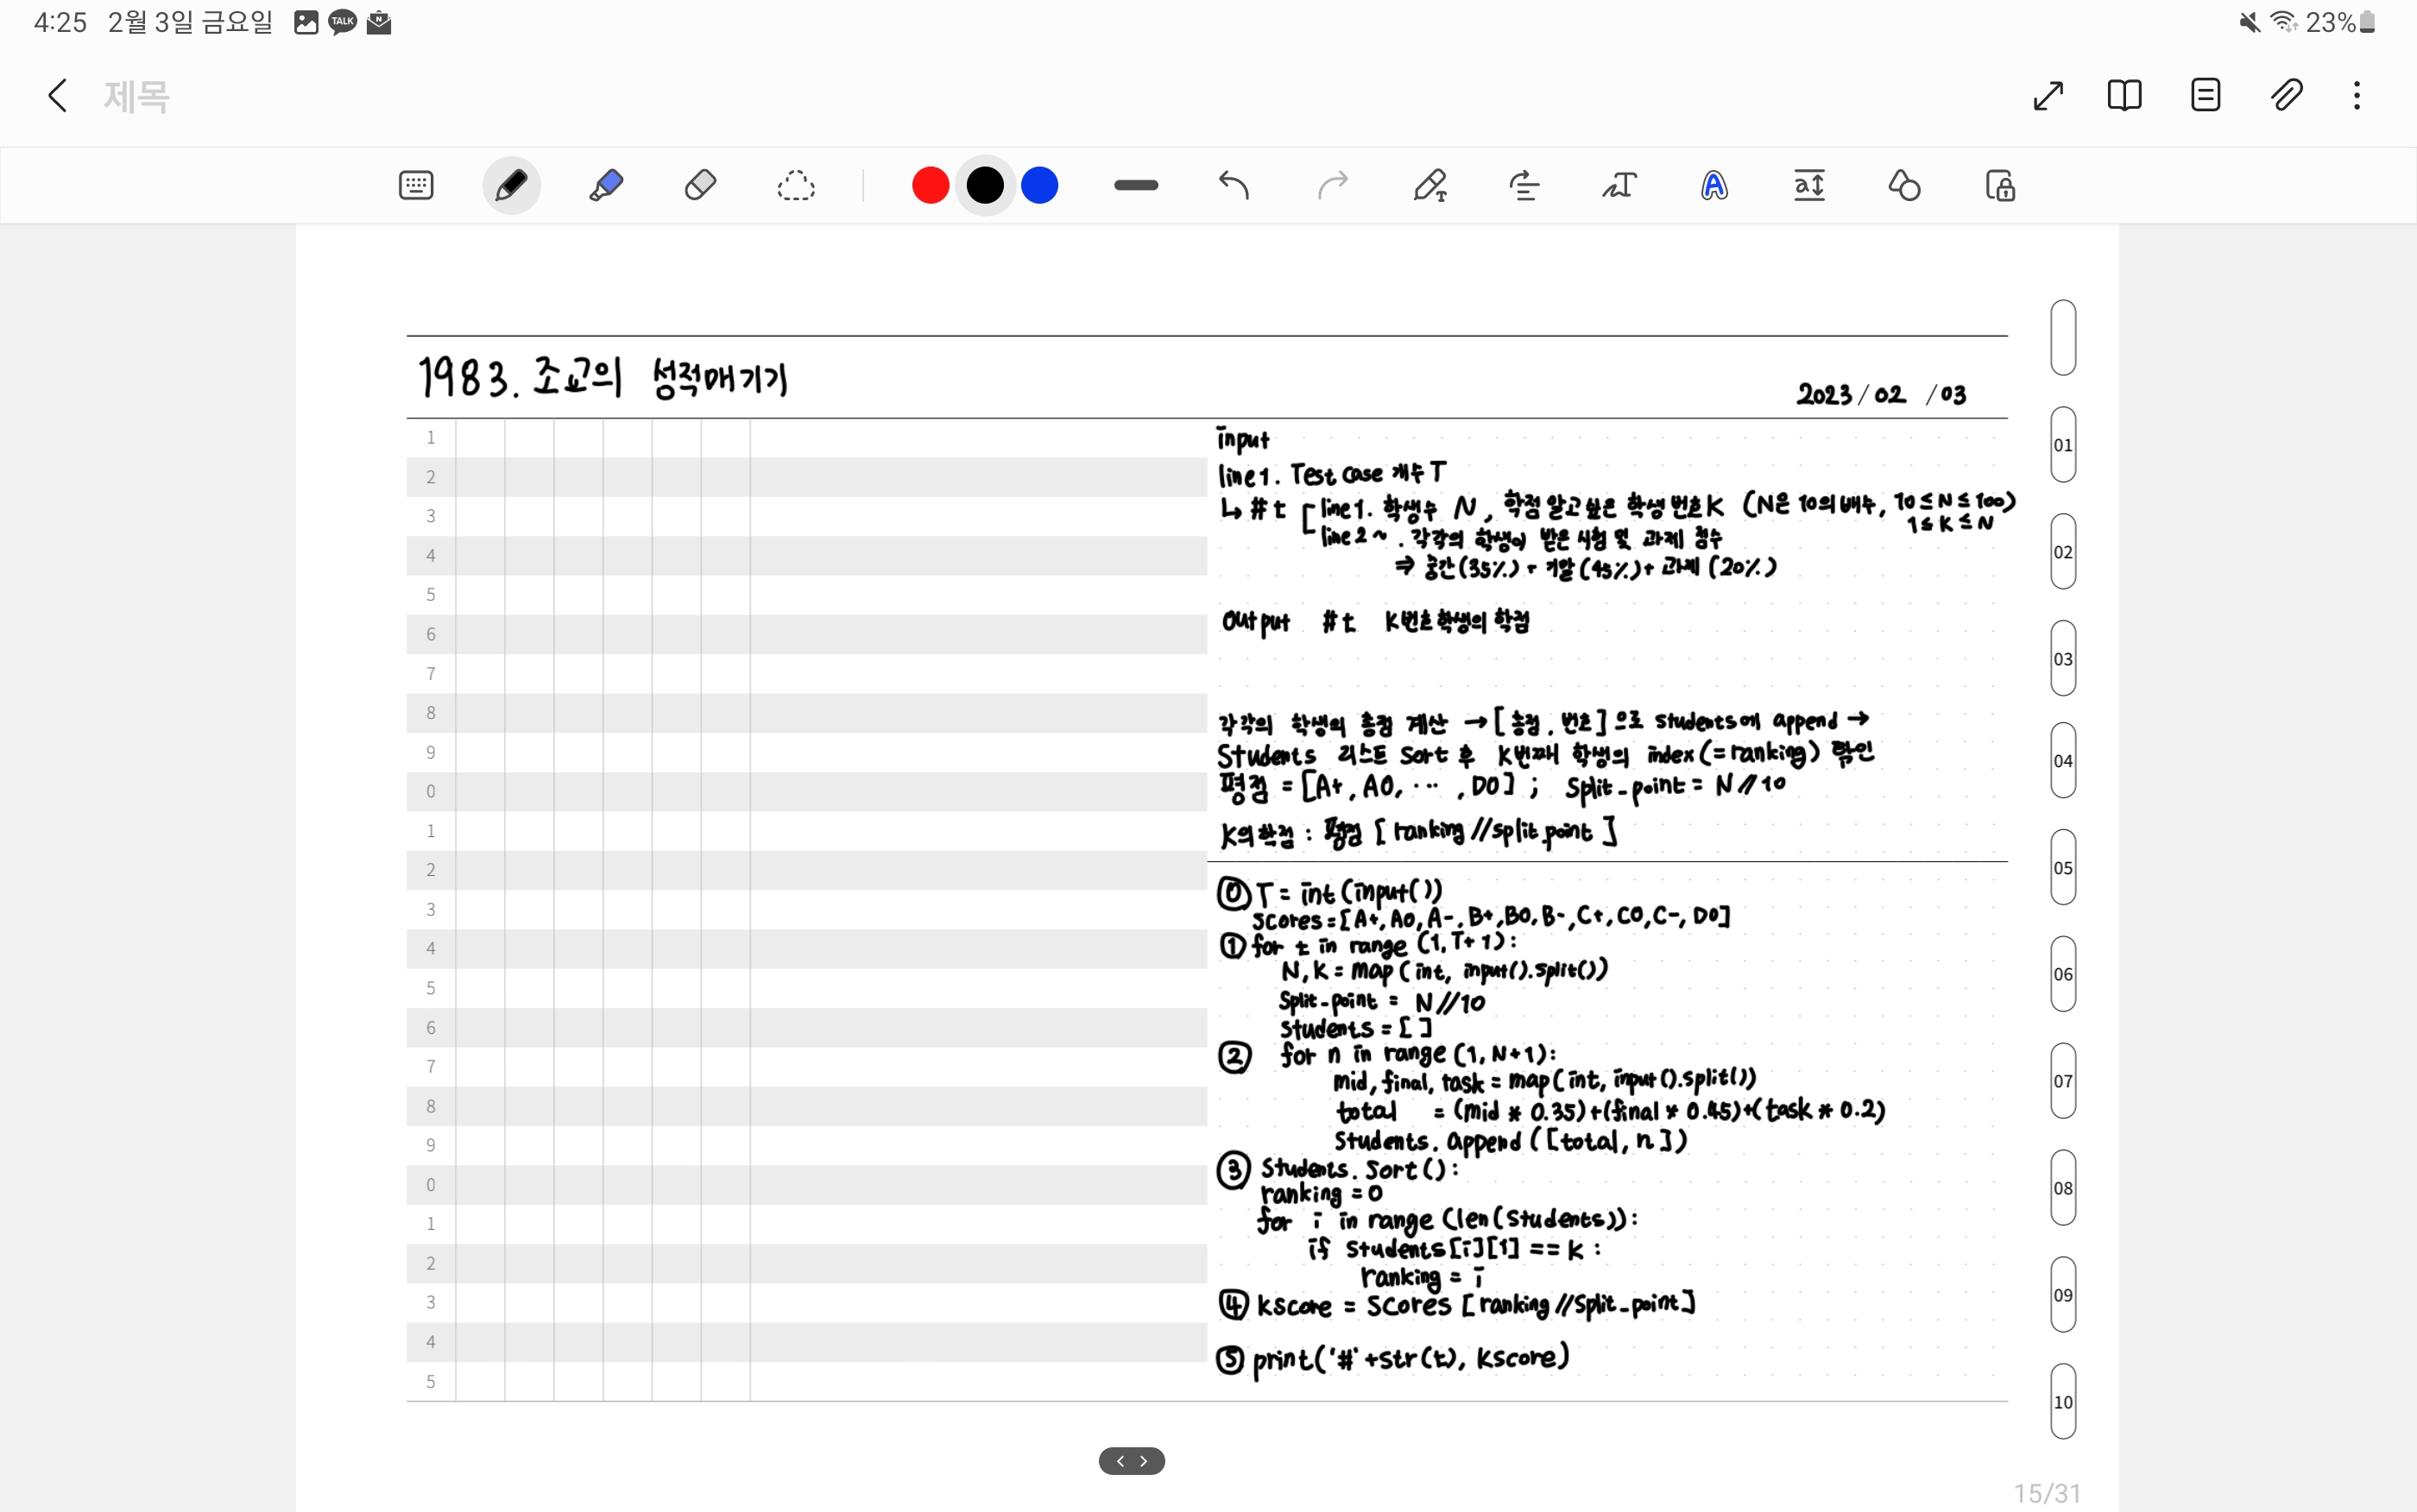 4:25 2월 3일 금요일 TALK N 23%
제목
1983. 조교의 성적매기기
2023/02 /03
input
line1. Test case 개수 T
↳ #t [ line1. 학생수 N, 학점 알고싶은 학생 번호 K (N은 10의 배수, 10≤N≤100)
1≤K≤N
line 2 ~ . 각각의 학생이 받은 시험 및 과제 점수
⇒ 중간(35%) + 기말(45%) + 과제(20%)
Output #t K번호 학생의 학점
각각의 학생의 총점 계산 → [총점, 번호]으로 students에 append →
Students 리스트 Sort 후 K번째 학생의 index(=ranking) 확인
평점 = [A+, A0, ··· , D0] ; Split-point = N//10
K의 학점 : 평점 [ranking//split_point]
⓪ T = int(input())
scores = [A+, A0, A-, B+, B0, B-, C+, C0, C-, D0]
① for t in range(1, T+1):
N, K = map(int, input().split())
Split-point = N//10
students = []
② for n in range(1, N+1):
mid, final, task = map(int, input().split())
total = (mid * 0.35)+(final * 0.45)+(task * 0.2)
Students. append([total, n])
③ Students. Sort():
ranking = 0
for i in range(len(Students)):
if Students[i][1] == K :
ranking = i
④ kscore = Scores [ranking//Split-point]
⑤ print('#'+str(t), Kscore)
1
2
3
4
5
6
7
8
9
0
1
2
3
4
5
6
7
8
9
0
1
2
3
4
5
01
02
03
04
05
06
07
08
09
10
15/31